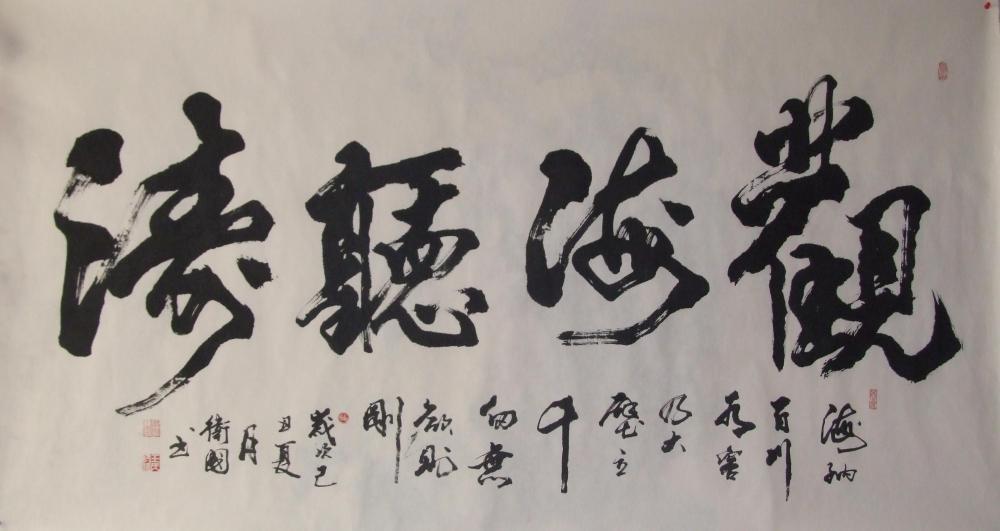 觀海聽濤
海納
百川
有容
乃大
壁立
千
仞無
欲則
剛
歲次己
丑夏
月
衛國
書